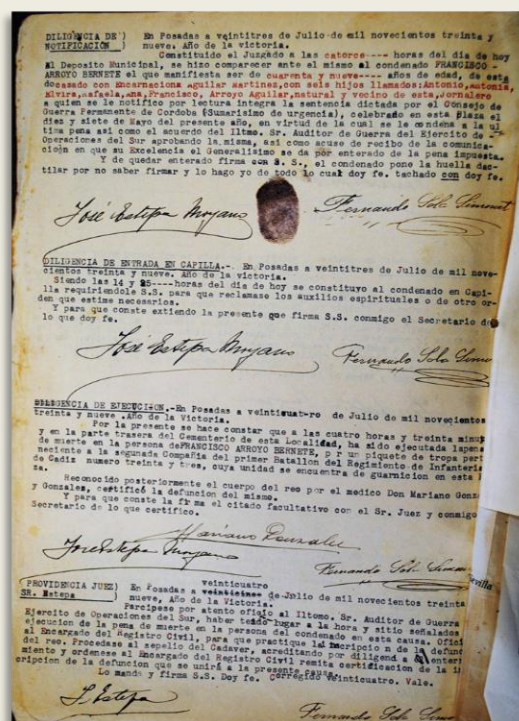 DILIGENCIA DE ) En Posadas a veintitres de Julio de mil novecientos treinta y
NOTIFICACION ) nueve. Año de la victoria.
Constituido el Juzgado a las catorce---- horas del día de hoy
al Deposito Municipal, se hizo comparecer ante el mismo al condenado FRANCISCO -
ARROYO BERNETE el que manifiesta ser de cuarenta y nueve---- años de edad, de esta
do casado con Encarnacion Aguilar martinez, con seis hijos llamados: Antonio, antonia,
Elvira, rafaela, ana, Francisco, Arroyo Aguilar, natural y vecino de esta, jornalero
a quien se le notifico por lectura integra la sentencia dictada por el Consejo de
Guerra Permanente de Cordoba (Sumarisimo de urgencia), celebrado en esta Plaza el
diez y siete de Mayo del presente año, en virtud de la cual se le condena a la ul
tima pena asi como el acuerdo del Iltmo. Sr. Auditor de Guerra del Ejercito de -
Operaciones del Sur aprobando la misma, asi como acuse de recibo de la comunica-
cioin en que su Excelencia el Generalisimo se da por enterado de la pena impuesta.
Y de quedar enterado firma con S. S., el condenado pone la huella dac-
tilar por no saber firmar y lo hago yo de todo lo cual doy fe. tachado con doy fe.
José Estepa Moyano Fernando Sola
DILIGENCIA DE ENTRADA EN CAPILLA.-. En Posadas a veintitres de Julio de mil nove-
cientos treinta y nueve. Año de la victoria.
Siendo las 14 y 25----horas del dia de hoy se constituyo al condenado en Capi-
lla requiriendole S.S. para que reclamase los auxilios espirituales o de otro or-
den que estime necesarios.
Y para que conste extiendo la presente que firma S.S. conmigo el Secretario de
lo que doy fe.
José Estepa Moyano Fernando Sola
DILIGENCIA DE EJECUCION.-En Posadas a veinticuatro de Julio de mil novecientos
treinta y nueve .Año de la Victoria.
Por la presente se hace constar que a las cuatro horas y treinta minut
y en la parte trasera del Cementerio de esta Localidad, ha sido ejecutada lapena
de muerte en la persona deFRANCISCO ARROYO BERNETE, p r un piquete de tropa pert
neciente a la segunada Compañia del primer Batallon del Regimiento de Infanteria
de Cadiz numero treinta y tres, cuya unidad se encuentra de guarnicion en esta
sa.
Reconocido posteriormente el cuerpo del reo por el medico Don Mariano Gonz
y Gonzales, certificó la defuncion del mismo.
Y para que conste la firma el citado facultativo con el Sr. Juez y conmigo
Secretario de lo que certifico.
Mariano Gonzalez
José Estepa Moyano Fernando Sola
veinticuatro
PROVIDENCIA JUEZ) En Posadas a veintisiete de Julio de mil novecientos treinta
SR. Estepa ) nueve, Año de la Victoria.
Participese por atento oficio al Iltomo. Sr. Auditor de Guerra
Ejercito de Operaciones del Sur, haber tenido lugar a la hora y sitio señalados
ejecucion de la pena de muerte en la persona del condenado en esta causa. Ofici
al Encargado del Registro Civil, para que practique la inscripcio n de la defunc
del reo. Procedase al sepelio del Cadaver, acreditando por diligencia el enterr
miento y ordenese al Encargado del Registro Civil remita certificacion de la i
cripcion de la defuncion que se unirá a la presente causa.
Lo mando y firma S.S. Doy fe. Corregido veinticuatro. Vale.
J. Estepa Fernando Sola
villa